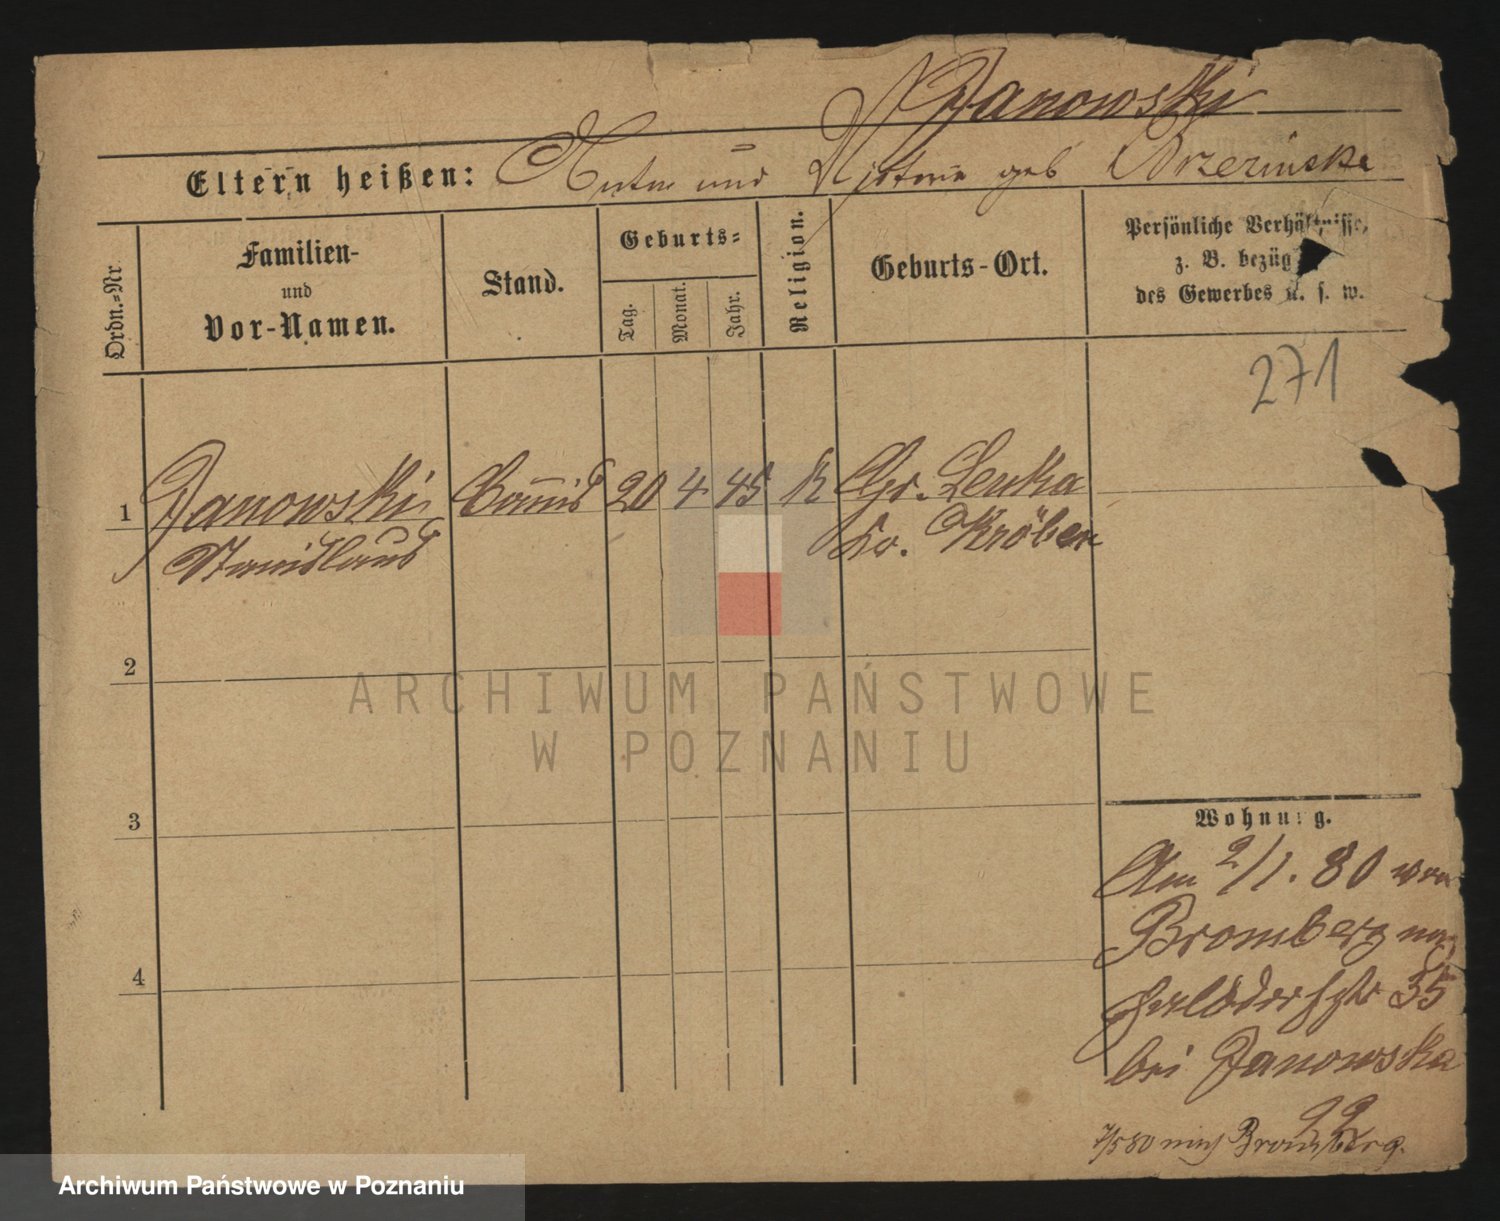 Janowski
Eltern heißen: und geb Brzezinska
Ordn.=Nr.
Familien-
und
Vor-Namen.
Stand.
Geburts=
Tag.
Monat.
Jahr.
Religion.
Geburts-Ort.
Persönliche Verhältnisse,
z. B. bezüg
des Gewerbes u. s. w.
271
1 Janowski Commis 20 4 45 K Gr. Lenka
Stanislaus Kr. Kröben
2
3
4
Wohnung.
Am 2/1. 80 von
Bromberg nach
35
bei Janowska
7/5 80 nach Bromberg.
ARCHIWUM PAŃSTWOWE
W POZNANIU
Archiwum Państwowe w Poznaniu